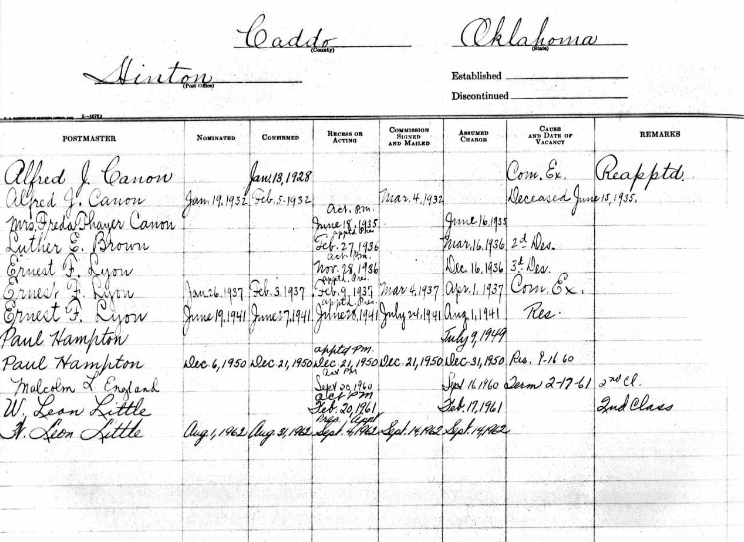 Caddo Oklahoma
(County) (State)
Hinton
(Post Office)
Established
Discontinued
POSTMASTER NOMINATED CONFIRMED RECESS OR ACTING COMMISSION SIGNED AND MAILED ASSUMED CHARGE CAUSE AND DATE OF VACANCY REMARKS
Alfred J. Canon Jan. 13, 1928 Com. Ex. Reapptd.
Alfred J. Canon Jan. 19, 1932 Feb. 5, 1932 Mar. 4, 1932 Deceased June 15, 1935.
Act. P.M.
Mrs. Freda Thayer Canon June 18, 1935 June 16, 1935
apptd Pres.
Luther E. Brown Feb. 27, 1936 Mar. 16, 1936 2d Des.
Act. P.M.
Ernest F. Lyon Nov. 28, 1936 Dec. 16, 1936 3d Des.
apptd. Pres.
Ernest F. Lyon Jan. 26, 1937 Feb. 3, 1937 Feb. 9, 1937 Mar. 4, 1937 Apr. 1, 1937 Com. Ex.
apptd Pres.
Ernest F. Lyon June 19, 1941 June 27, 1941 June 28, 1941 July 24, 1941 Aug. 1, 1941 Res.
Paul Hampton July 9, 1949
apptd P.M.
Paul Hampton Dec. 6, 1950 Dec. 21, 1950 Dec. 21, 1950 Dec. 21, 1950 Dec. 31, 1950 Res. 9-16 60
Act PM
Malcolm L England Sept 20, 1960 Sept 16 1960 Term 2-17-61 2nd Cl.
Act PM
W. Leon Little Feb. 20, 1961 Feb. 17, 1961 2nd Class
Appt
W. Leon Little Aug 1, 1962 Aug 31, 1962 Sept. 4, 1962 Sept. 14, 1962 Sept. 14, 1962